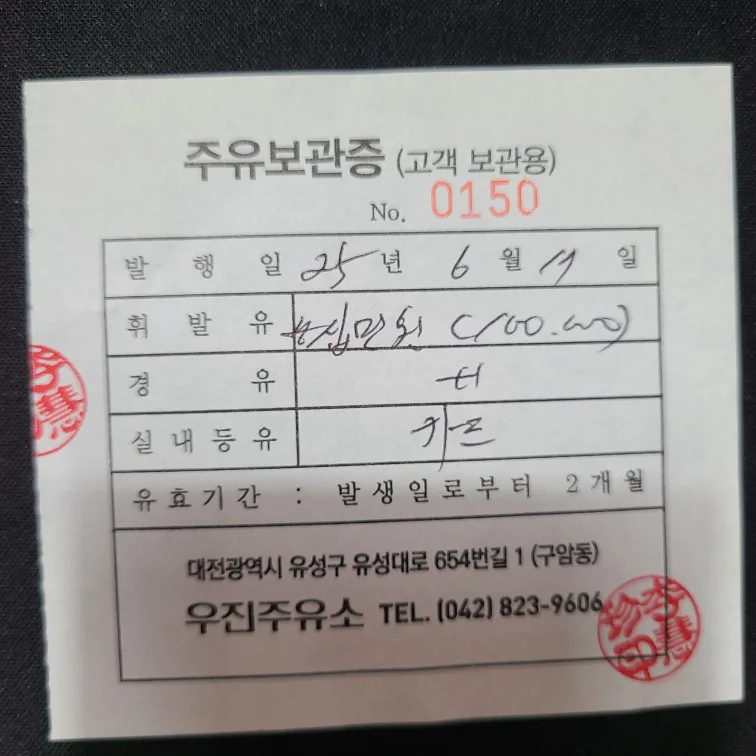 주유보관증 (고객 보관용)
No. 0150
발 행 일 25년 6월 11일
휘 발 유 ₩십만원 (100.000)
경 유
실내등유 카드
유효기간 : 발생일로부터 2개월
대전광역시 유성구 유성대로 654번길 1 (구암동)
우진주유소 TEL. (042) 823-9606